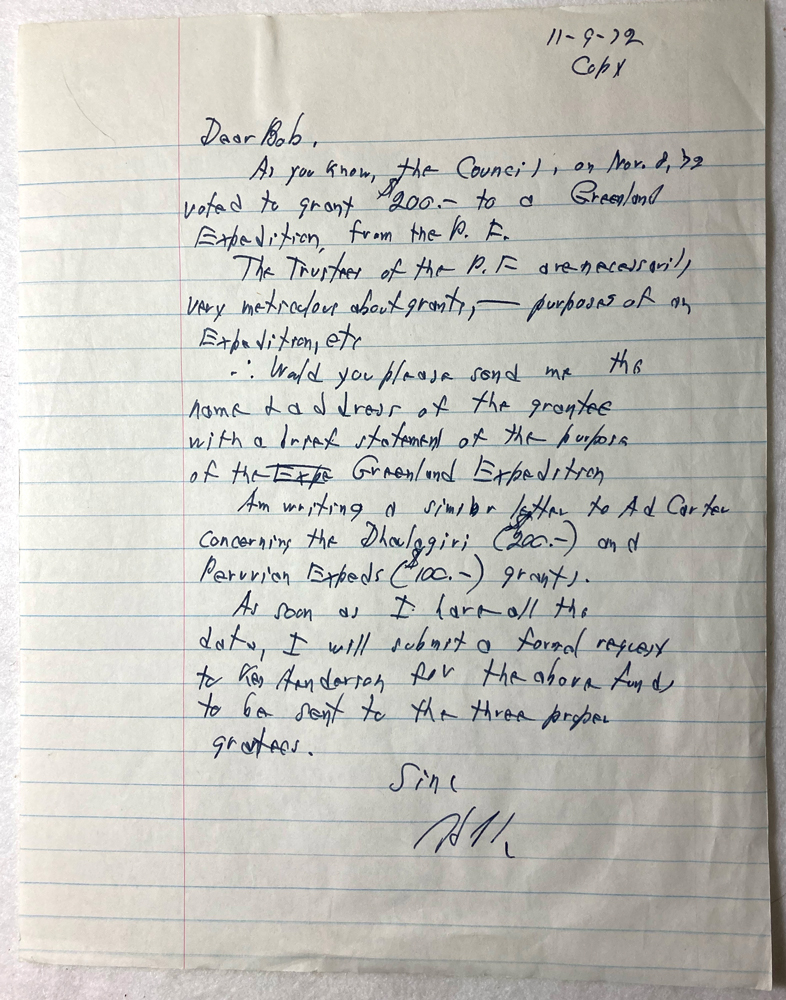 11-9-72
Copy
Dear Bob,
As you know, the Council, on Nov. 8, 72
voted to grant $200.- to a Greenland
Expedition, from the P. F.
The Trustees of the P. F are necessarily
very meticulous about grants, — purposes of an
Expedition, etc
∴ Would you please send me the
name & address of the grantee
with a brief statement of the purpose
of the Expe Greenland Expedition
Am writing a similar letter to Ad Carter
concerning the Dhaulagiri ($200.-) and
Peruvian Expeds ($100.-) grants.
As soon as I have all the
data, I will submit a formal request
to Ken Henderson for the above funds
to be sent to the three proper
grantees.
Sinc